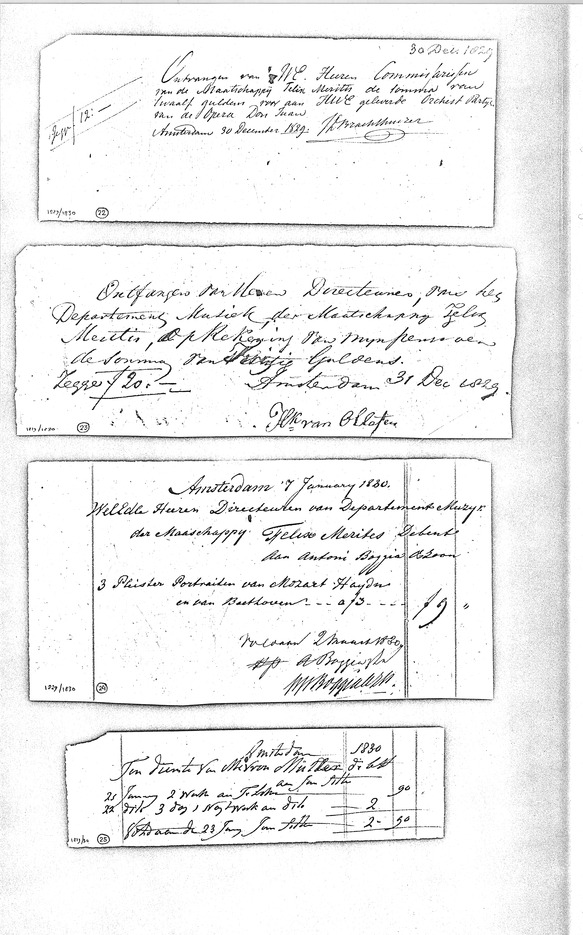 30 Dec 1829
Ontvangen van de WE. Heeren Commissarissen
van de Maatschappij Felix Meritis de somma van
twaalf guldens voor aan HWE geleverde Orchest Partij
van de Opera Don Juan
Zegge f 12:—
Amsterdam 30 December 1829.
1829/1830 22
Ontfangen van Heeren Directeuren, van het
Departement Musiek, der Maatschappy Felix
Meritis, op Rekening van myn
de Somma van Guldens.
Zegge f 20:—
Amsterdam 31 Dec 1829.
van
1829/1830 23
Amsterdam 7 January 1830.
WelEdle Heeren Directeuren van Departement Muzyk
der Maaschappij Felix Merites Debent
Aan Antoni Boggia & Zoon
3 Pleister Portraiten van Mozart Haydn
en van Beethoven - - - a f3 - - - - f 9 "
Voldaan 2 Maart 1830
1829/1830 24
Amsterdam 1830
Ten dienste van
21 January 2 werk aan 90
22 dito 3 dag 1 werk an dito — 2
Voldaan de 23 Jany — 2 - 90
1829/30 25